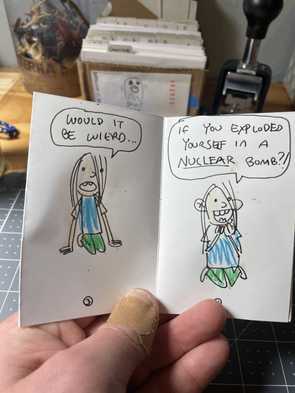 WOULD IT
BE WIERD...
IF YOU EXPLODED
YOURSELF IN A
NUCLEAR BOMB?!